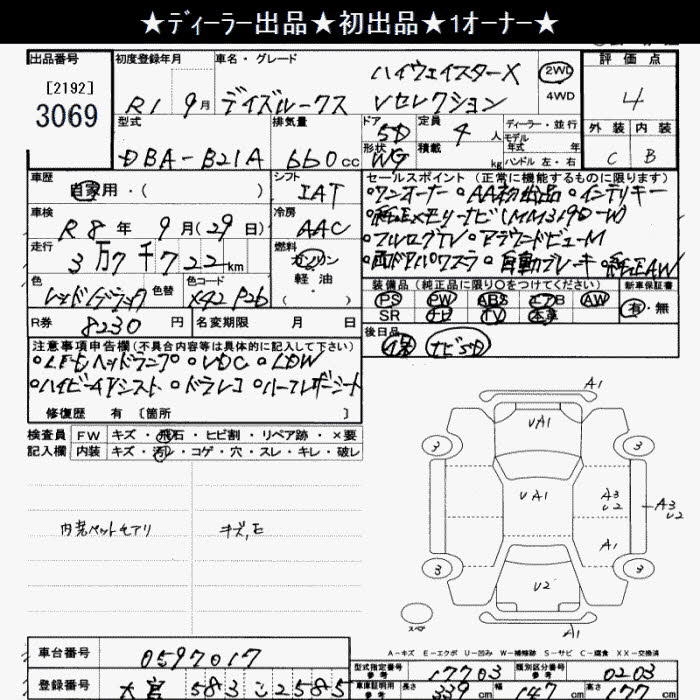 ★ディーラー出品★初出品★1オーナー★
出品番号
[2192]
3069
初度登録年月
R1 9月
車名・グレード
ハイウェイスターX
デイズルークス Vセレクション
2WD
4WD
評価点
4
外装 内装
C B
型式
DBA-B21A
排気量
660cc
ドア
5D
形状
WG
定員
4人
積載
kg
ディーラー・並行
モデル
年式 年
ハンドル 左・右
車歴
自家用・( )
シフト
IAT
車検
R8年 9月(29日)
冷房
AAC
走行
3万7千722km
燃料
ガソリン
軽油
( )
色
レッド/ブラック
色替
色コード
X42 P26
R券
8230円
名変期限 月 日
セールスポイント (正常に機能するものに限ります)
○ワンオーナー ○AA初出品 ○インテリキー
○純正メモリーナビ(MM319D-W)
○フルセグTV ○アラウンドビューM
○両ドアパワスラ ○自動ブレーキ ○純正AW
装備品(純正品に限り○をつけてください)
新車保証書
PS PW ABS エアB AW
SR ナビ TV 本革
有・無
後日品
保 ナビSD
注意事項申告欄(不具合内容等は具体的に記入して下さい)
○LEDヘッドランプ ○VDC ○LDW
○ハイビームアシスト ○ドラレコ ○ハーフレザーシート
修復歴 有 〔箇所 〕
検査員
記入欄
FW キズ・飛石・ヒビ割・リペア跡・×要
内装 キズ・汚レ・コゲ・穴・スレ・キレ・破レ
内装ペットモアリ
キズ,E
A1
UA1
3 3
UA1
A3
U2
A3
U2
A1
3 3
U2
スペア
A1
A-キズ E-エクボ U-凹み W-補修跡 S-サビ C-腐食 XX-交換済
車台番号
0597017
登録番号
大宮 583 こ 2585
型式指定番号
参考
17703
類別区分番号
参考
0203
車庫証明用
参考
長さ 339cm 幅 147cm 高さ 177cm